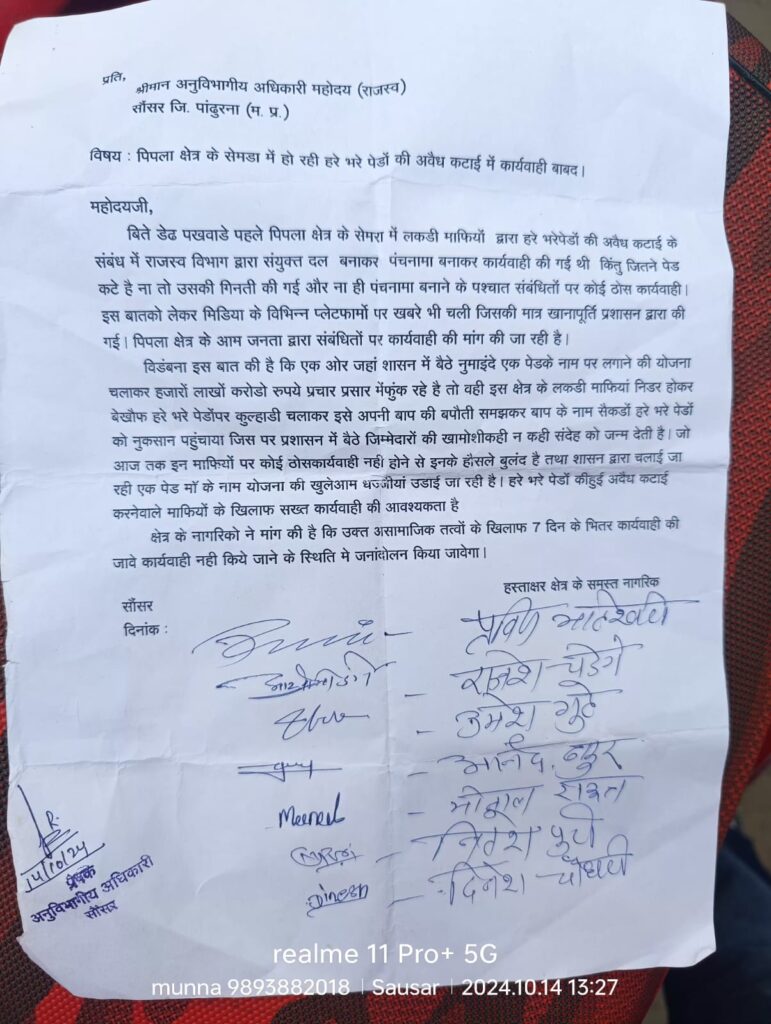 प्रति,
श्रीमान अनुविभागीय अधिकारी महोदय (राजस्व)
सौंसर जि. पांढुरना (म. प्र.)
विषय : पिपला क्षेत्र के सेमडा में हो रही हरे भरे पेडों की अवैध कटाई में कार्यवाही बाबद।
महोदयजी,
बिते डेढ पखवाडे पहले पिपला क्षेत्र के सेमरा में लकडी माफियों द्वारा हरे भरेपेडों की अवैध कटाई के
संबंध में राजस्व विभाग द्वारा संयुक्त दल बनाकर पंचनामा बनाकर कार्यवाही की गई थी किंतु जितने पेड
कटे है ना तो उसकी गिनती की गई और ना ही पंचनामा बनाने के पश्चात संबंधितों पर कोई ठोस कार्यवाही।
इस बातको लेकर मिडिया के विभिन्न प्लेटफार्मो पर खबरे भी चली जिसकी मात्र खानापूर्ति प्रशासन द्वारा की
गई। पिपला क्षेत्र के आम जनता द्वारा संबंधितों पर कार्यवाही की मांग की जा रही है।
विडंबना इस बात की है कि एक ओर जहां शासन में बैठे नुमाइंदे एक पेडके नाम पर लगाने की योजना
चलाकर हजारों लाखों करोडो रुपये प्रचार प्रसार मेंफुंक रहे है तो वही इस क्षेत्र के लकडी माफियां निडर होकर
बेखौफ हरे भरे पेडोंपर कुल्हाडी चलाकर इसे अपनी बाप की बपौती समझकर बाप के नाम सैकडों हरे भरे पेडों
को नुकसान पहुंचाया जिस पर प्रशासन में बैठे जिम्मेदारों की खामोशीकही न कही संदेह को जन्म देती है। जो
आज तक इन माफियों पर कोई ठोसकार्यवाही नही होने से इनके हौसले बुलंद है तथा शासन द्वारा चलाई जा
रही एक पेड मॉ के नाम योजना की खुलेआम धज्जीयां उडाई जा रही है। हरे भरे पेडों कीहुई अवैध कटाई
करनेवाले माफियों के खिलाफ सख्त कार्यवाही की आवश्यकता है
क्षेत्र के नागरिको ने मांग की है कि उक्त असामाजिक तत्वों के खिलाफ 7 दिन के भितर कार्यवाही की
जावे कार्यवाही नही किये जाने के स्थिति मे जनांदोलन किया जावेगा।
हस्ताक्षर क्षेत्र के समस्त नागरिक
सौंसर
दिनांक :
राजेश
उमेश गुर्वे
आनंद
Dinesh
दिनेश चौधरी
14/10/24
प्रेषक
अनुविभागीय अधिकारी
सौंसर
realme 11 Pro+ 5G
munna 9893882018 | Sausar | 2024.10.14 13:27